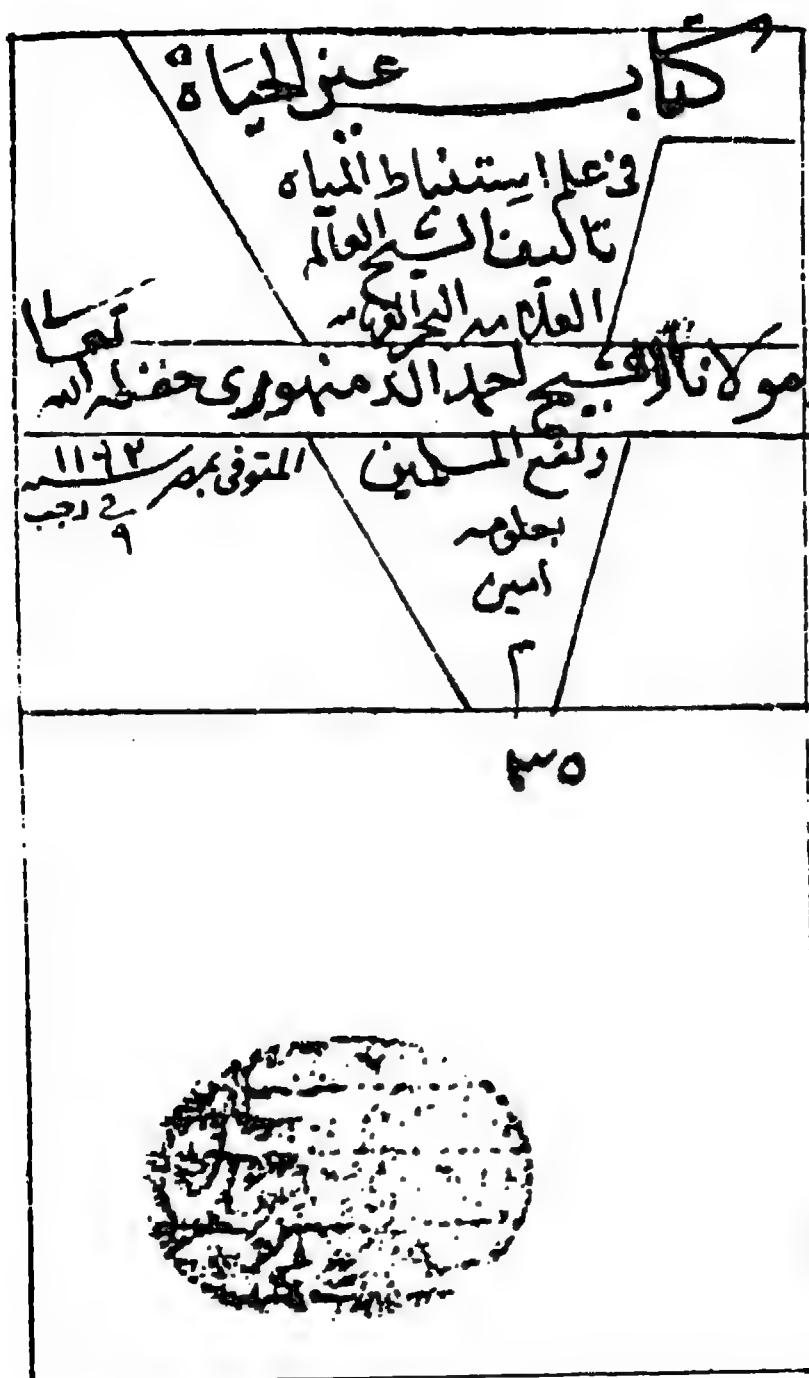 كتاب عين الحياة
في علم استنباط المياه
تأليف الشيخ العالم
العلامه البحر الفهامه
مولانا الشيخ احمد الدمنهورى حفظه الله تعالى
ونفع المسلمين
بعلومه
امين
م
المتوفى بمصر سنه ١١٩٢
في رجب
٩
٣٥